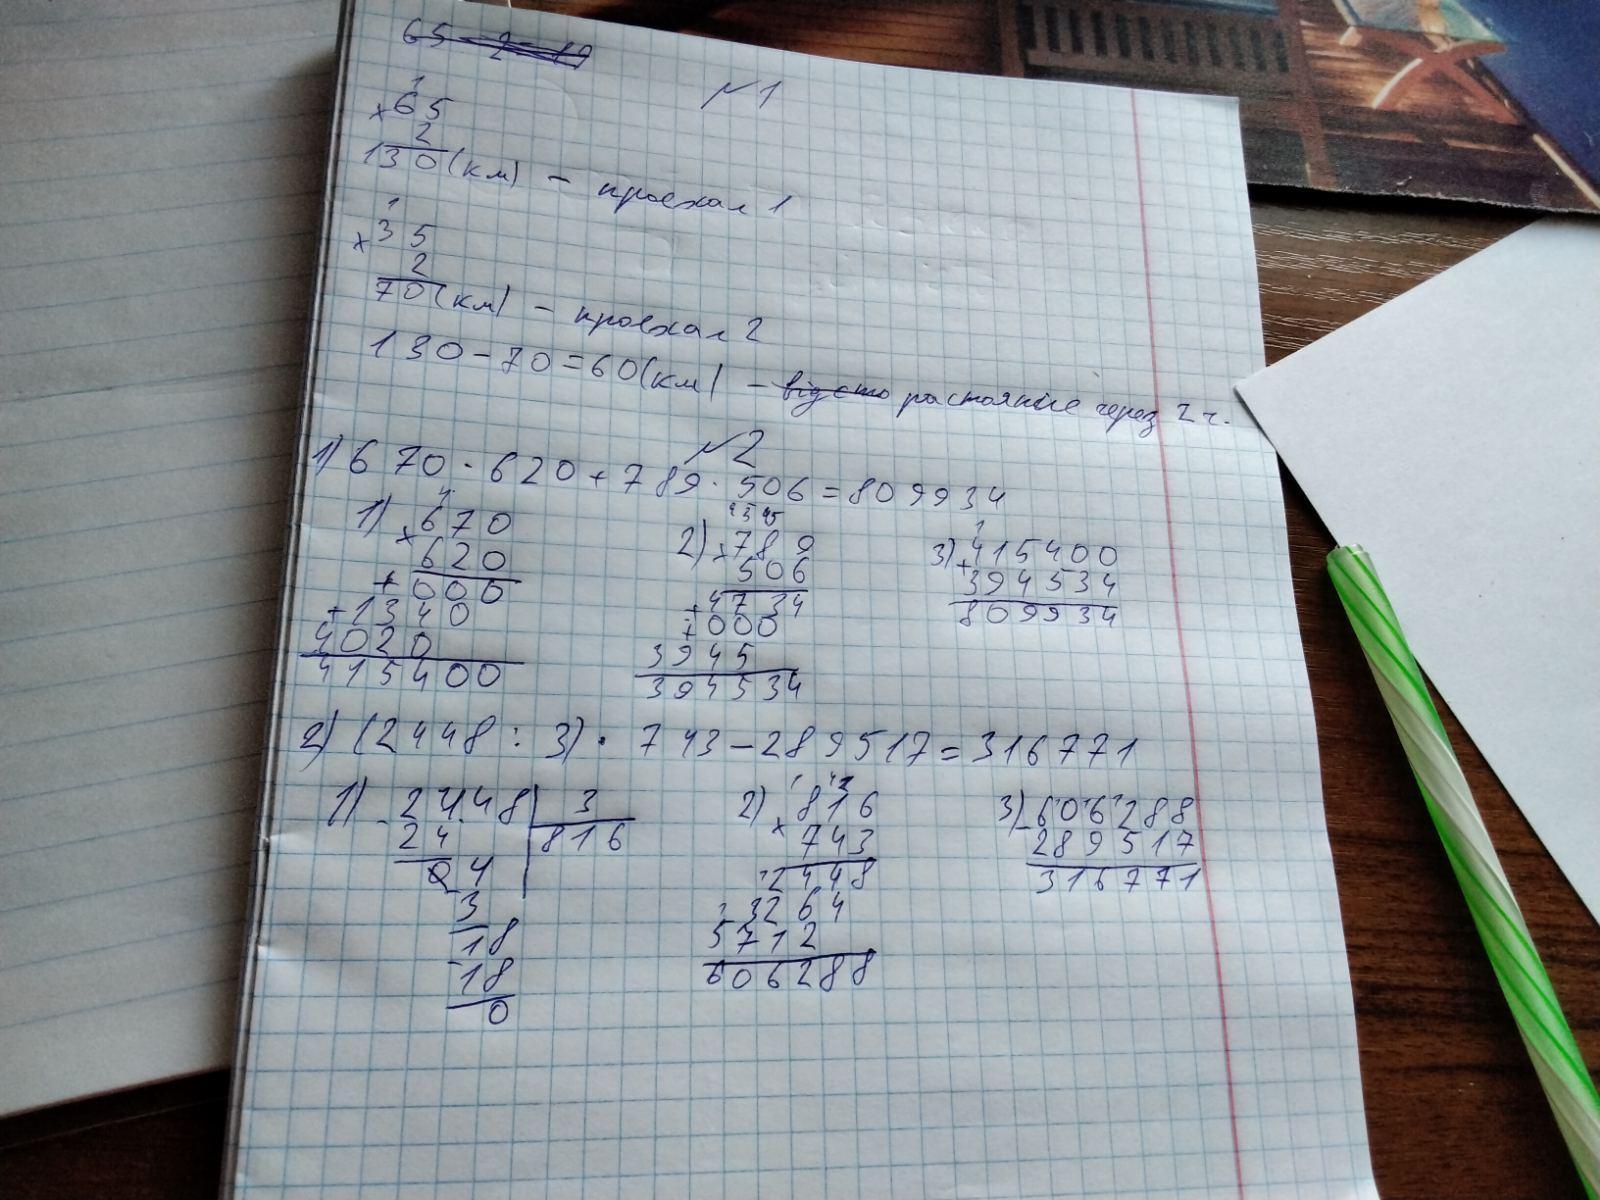 №1
65
2
130(км) – проехал 1
35
2
70(км) – проехал 2
130-70=60(км) – растояние через 2 ч.
№2
1) 670·620+789·506=809934
1) ×670 2) ×789 3) +415400
620 506 394534
+000 +4734 809934
+1340 +000
4020 3945
415400 394534
2) (2448:3)·743-289517=316771
1) -2448 3 2) ×816 3) -606288
24 816 743 289517
04 2448 316771
3 3264
18 5712
-18 606288
0